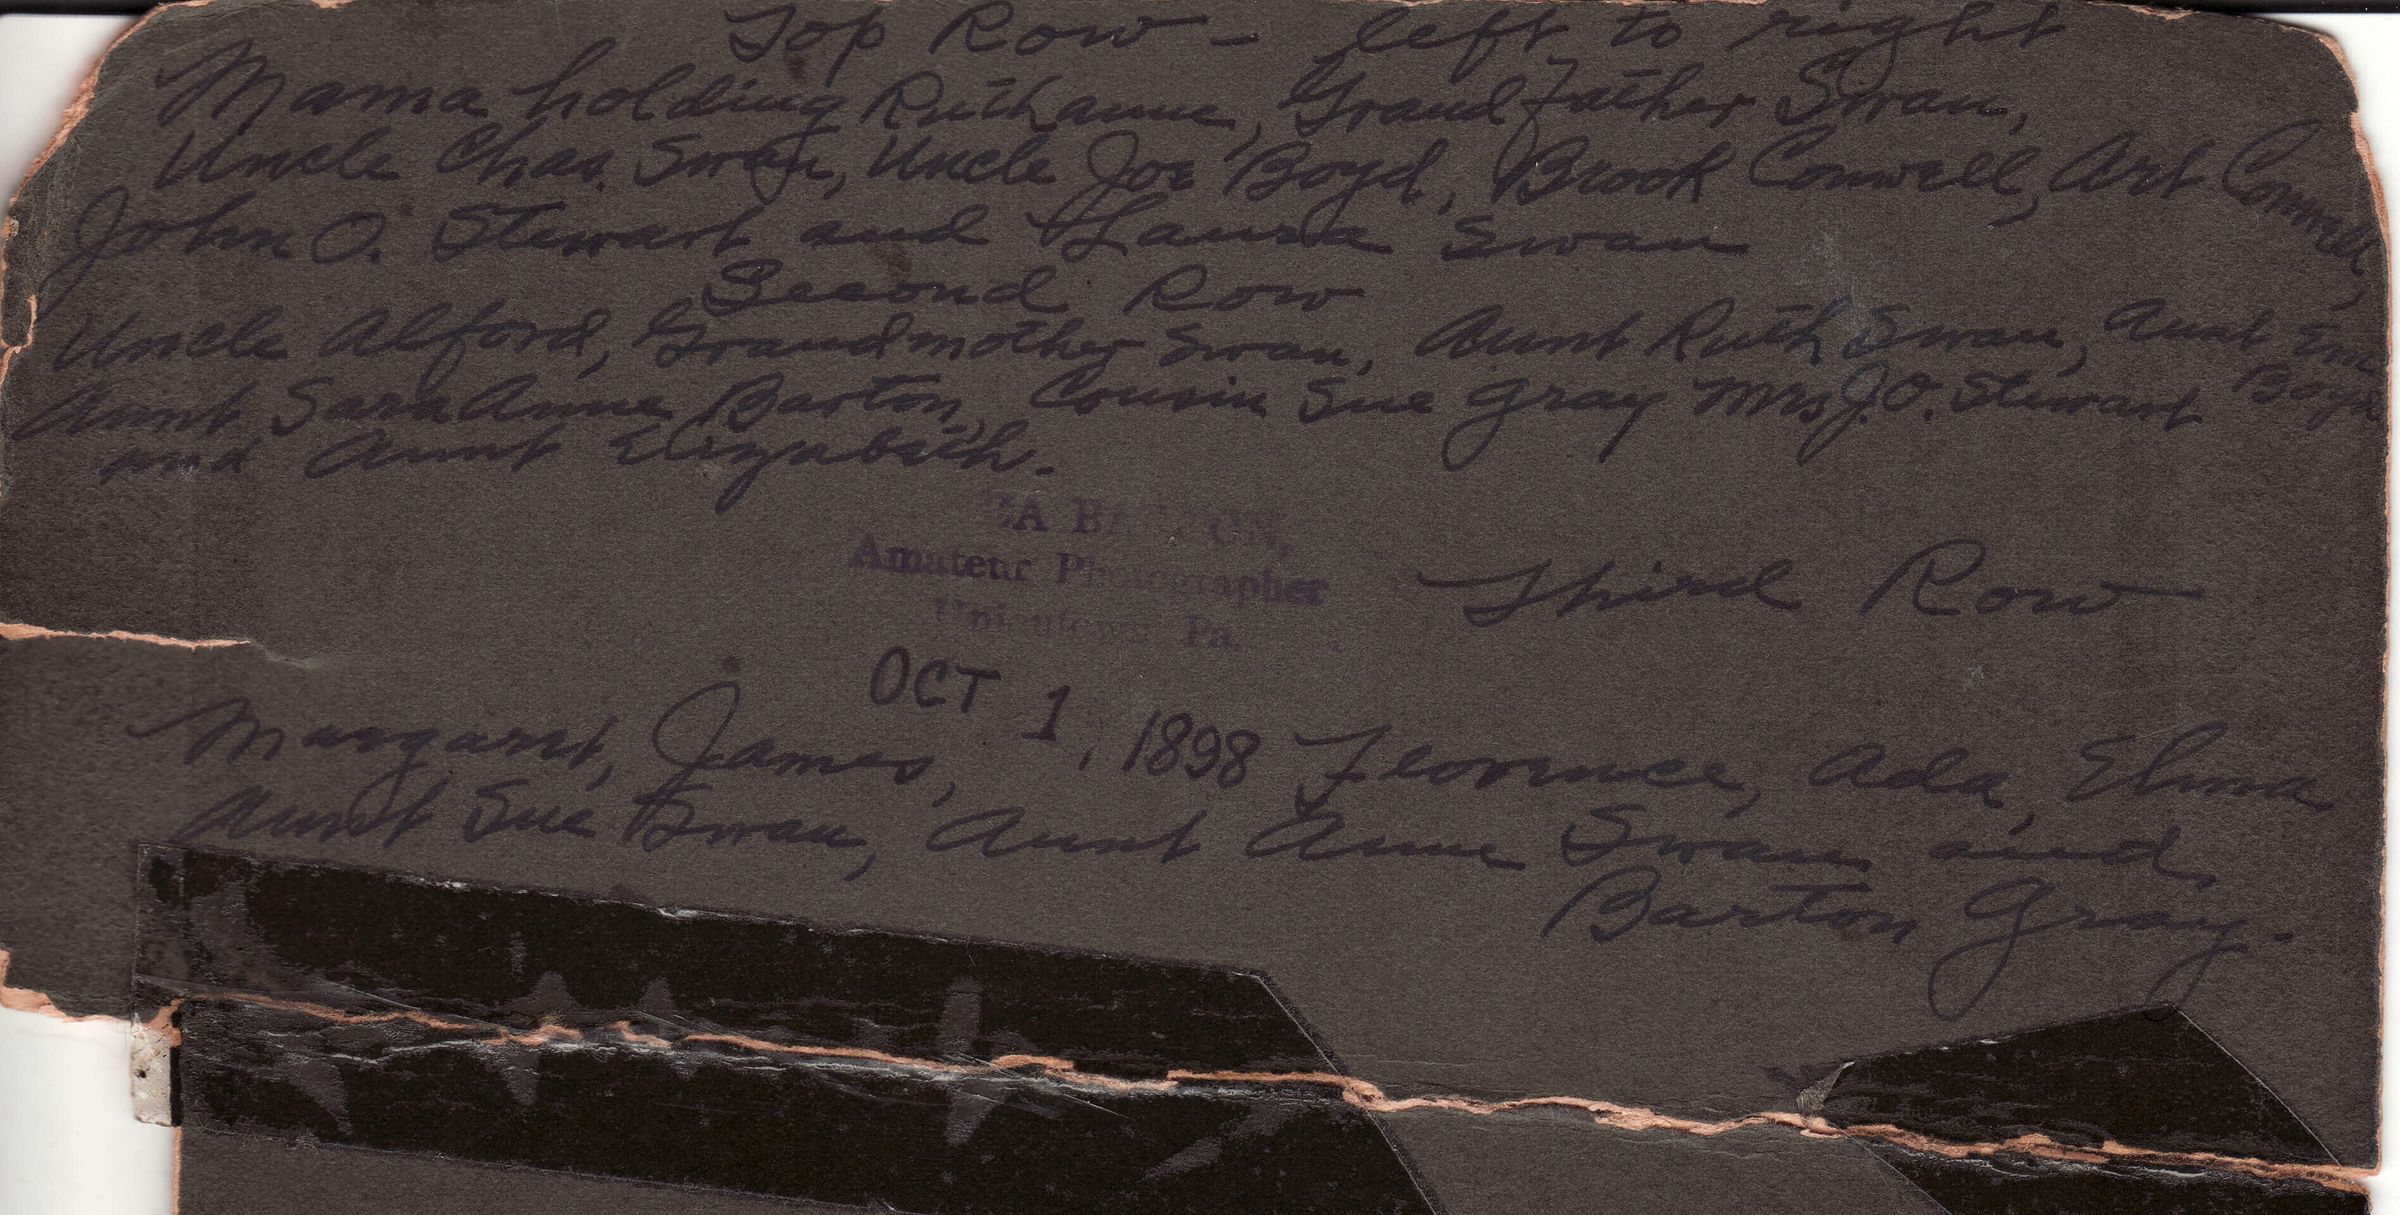 Top Row - left to right
Mama holding Ruthanne, Grandfather Swan,
Uncle Chas. Swan, Uncle Joe Boyd, Brook Conwell, Art Conwell,
John O. Stewart and Laura Swan
Second Row
Uncle Alford, Grandmother Swan, Aunt Ruth Swan, Aunt Em Boyd
Aunt Sara Anne Barton, Cousin Sue Gray Mrs J. O. Stewart
and Aunt Elizabeth.
Amateur Photographer
Pa.
Third Row
OCT 1, 1898
Margaret, James, Florence, Ada, Elma
Aunt Sue Swan, Aunt Anne Swan and
Barton Gray.